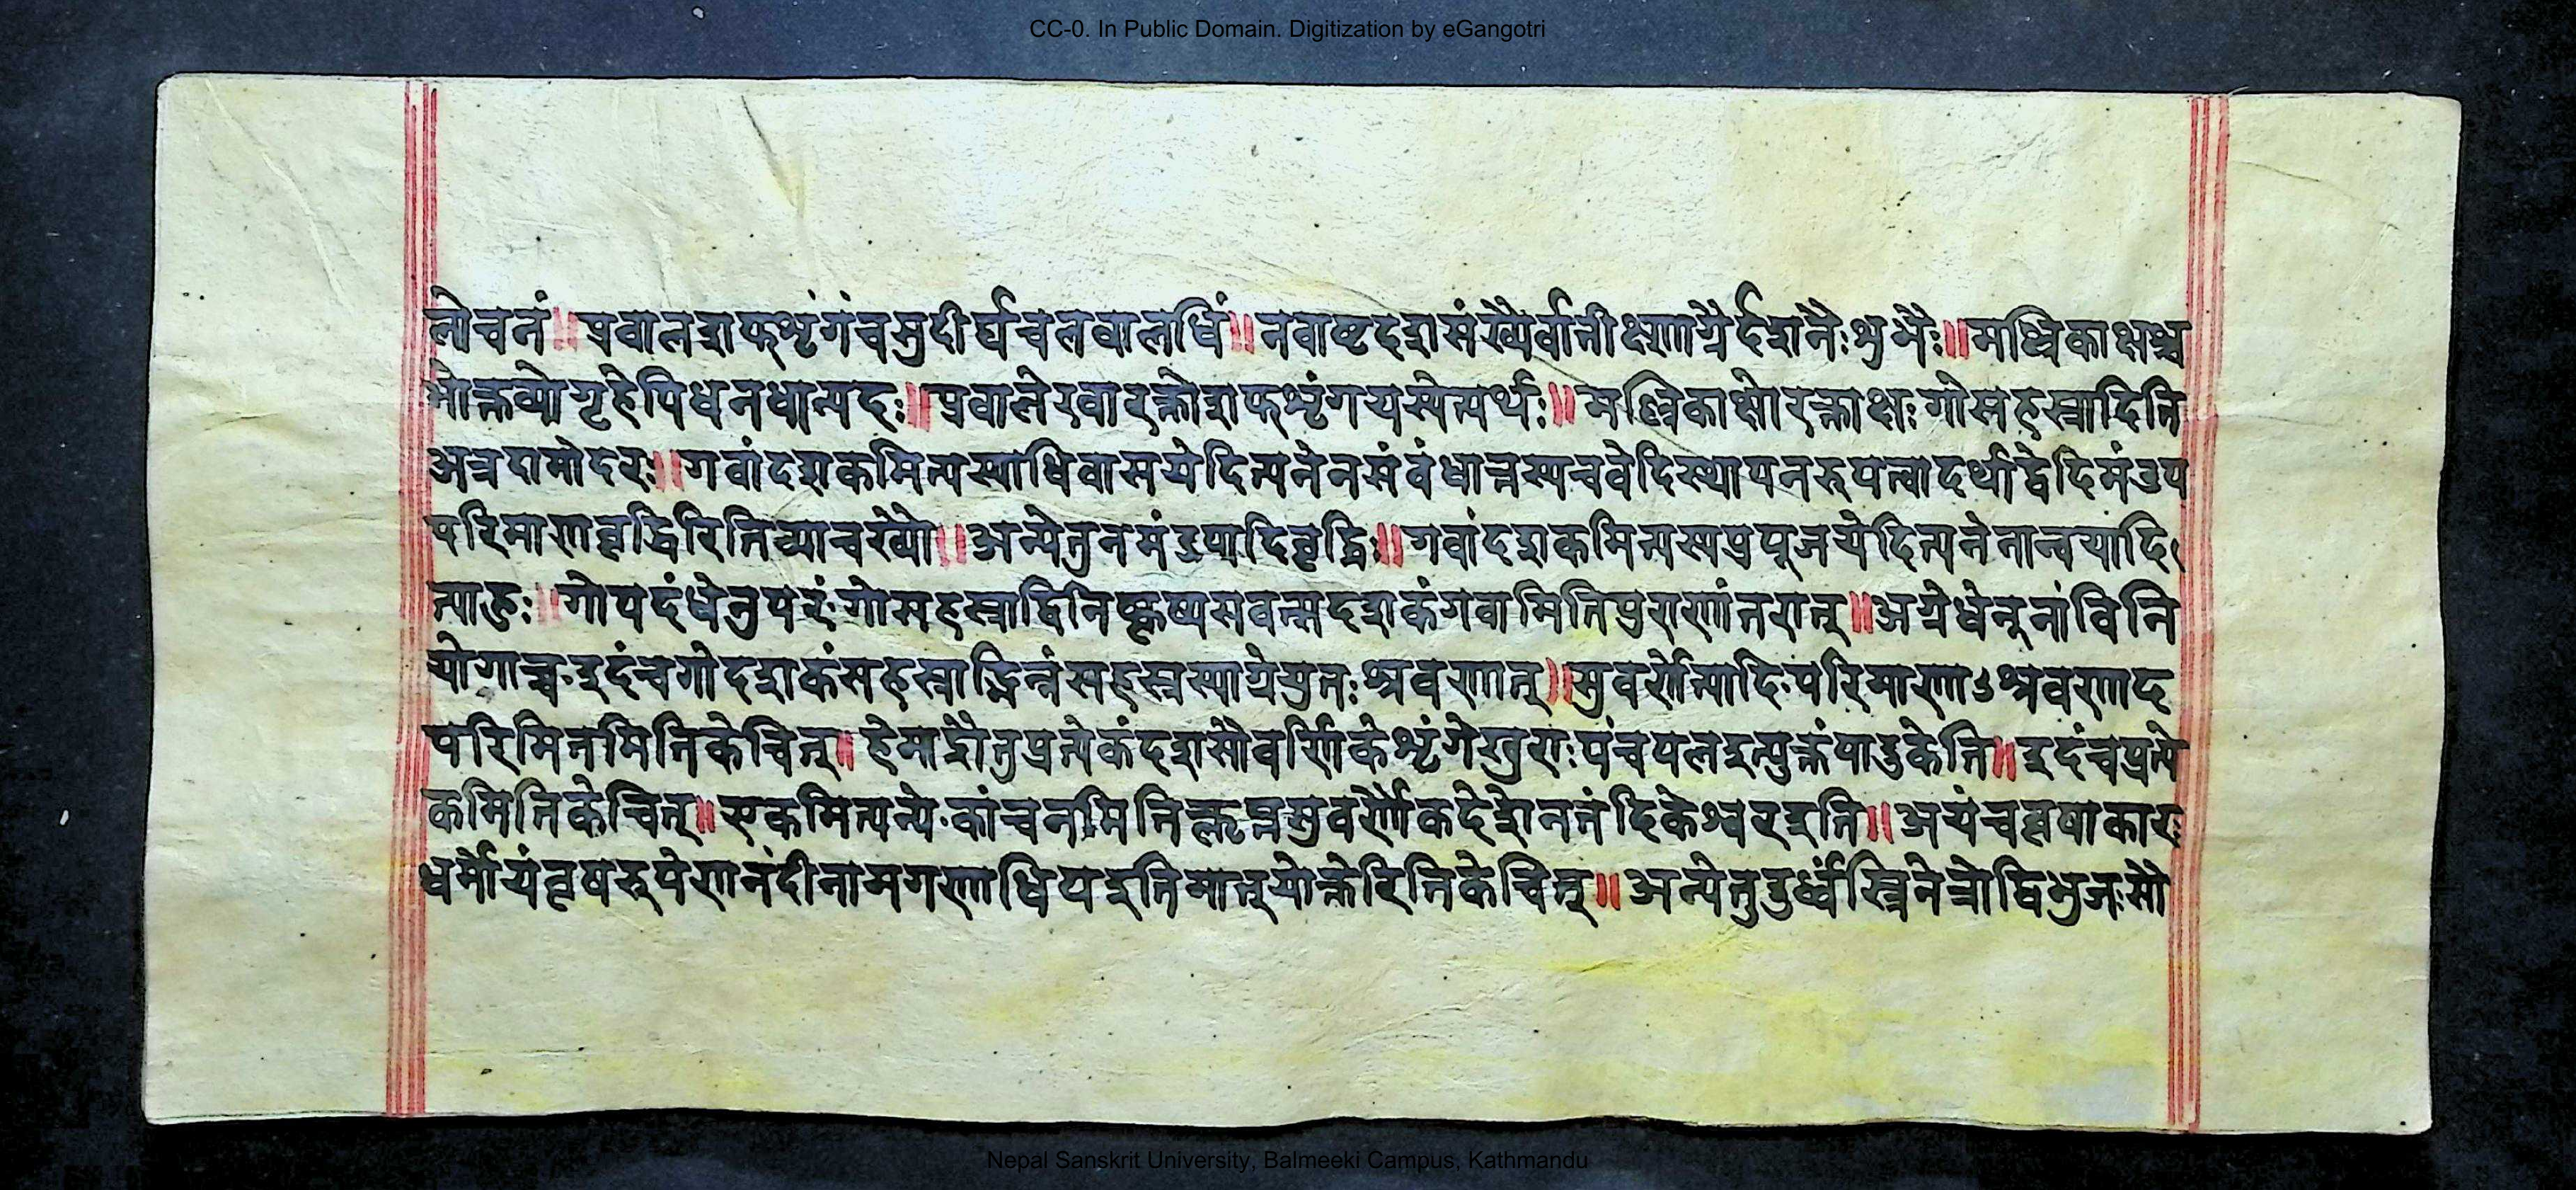 CC-0. In Public Domain. Digitization by eGangotri
लोचनं॥ प्रवालशफशृंगंचसुदीर्घचलवालधिं॥ नवाष्टदशसंख्यैर्वातीक्ष्णाग्रैर्दशनैःशुभैः॥ मल्लिकाक्षश्च
मोक्तव्योगृहेपिधनधान्यदः॥ प्रवालेरवारक्तोशफशृंगयस्येत्यर्थः॥ मल्लिकाक्षोरक्ताक्षः गोसहस्त्रादिति
अत्रदामोदरः॥ गवांदशकमित्यस्याधिवासयेदित्यनेनसंवंधात्तस्यचवेदिस्थापनरुपत्वादर्थाद्वेदिमंडप
परिमाणवृद्धिरितिव्याचख्यो॥ अन्येतुनमंडपादिवृद्धिः॥ गवांदशकमित्यस्यप्रपूजयेदित्यनेनान्वयादि
त्याहुः॥ गोपदंधेनुपरं गोसहस्त्रादिनिष्कृष्यसवत्सदशकंगवामितिपुराणांतरात्॥ अग्रेधेनूनांविनि
योगाच्च इदंचगोदशकंसहस्त्राद्भिन्नंसहस्त्रस्याग्रेयुतःश्रवणात्॥ सुवर्णेत्यादिपरिमाणाऽश्रवणाद
परिमितमितिकेचित्॥ हेमाद्रौतुप्रत्येकंदशसौवर्णिकेशृंगेखुराःपंचपलइत्युक्तंपादुकेति॥ इदंचप्रत्ये
कमितिकेचित्॥ एकमित्यन्ये कांचनमितिक्लृप्तसुवर्णैकदेशेननंदिकेश्वरइति॥ अयंचवृषाकारः
धर्मोयंवृषरुपेणनंदीनामगणाधिपइतिमात्स्योक्तेरितिकेचित्॥ अन्येतुउर्ध्वस्त्रिनेत्रोद्विभुजःसौ
Nepal Sanskrit University, Balmeeki Campus, Kathmandu